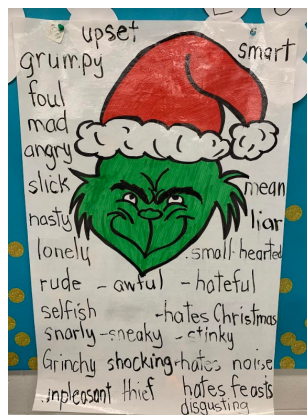 upset
smart
grumpy
foul
mad
angry
slick
mean
nasty
liar
lonely
small-hearted
rude - awful - hateful
selfish
-hates Christmas
snarly -sneaky - stinky
Grinchy shocking -hates noise
unpleasant thief hates feasts
disgusting